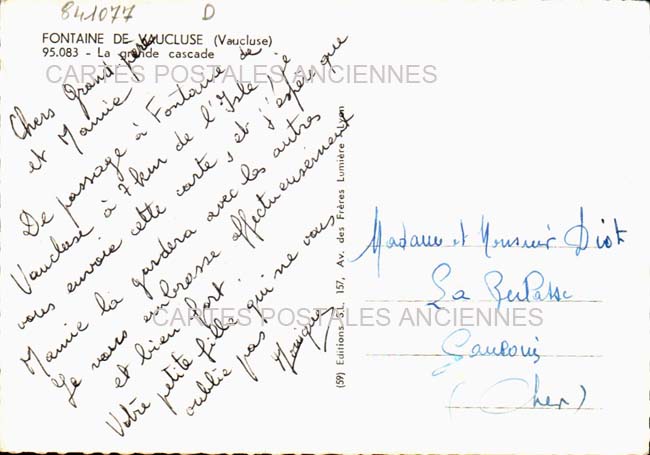 841077 D
FONTAINE DE VAUCLUSE (Vaucluse)
95.083 - La grande cascade
CARTES POSTALES ANCIENNES
Chers Grand père
et Mamie
De passage à Fontaine de
Vaucluse à 7 km de l'Isle, je
vous envoie cette carte, et j'espère que
Mamie la gardera avec les autres
Je vous embrasse affectueusement
et bien fort.
Votre petite fille qui ne vous
oublie pas
(59) Editions S.L. 157, Av. des Frères Lumière - Lyon
Madame et Monsieur Diot
La
CARTES POSTALES ANCIENNES
(Cher)